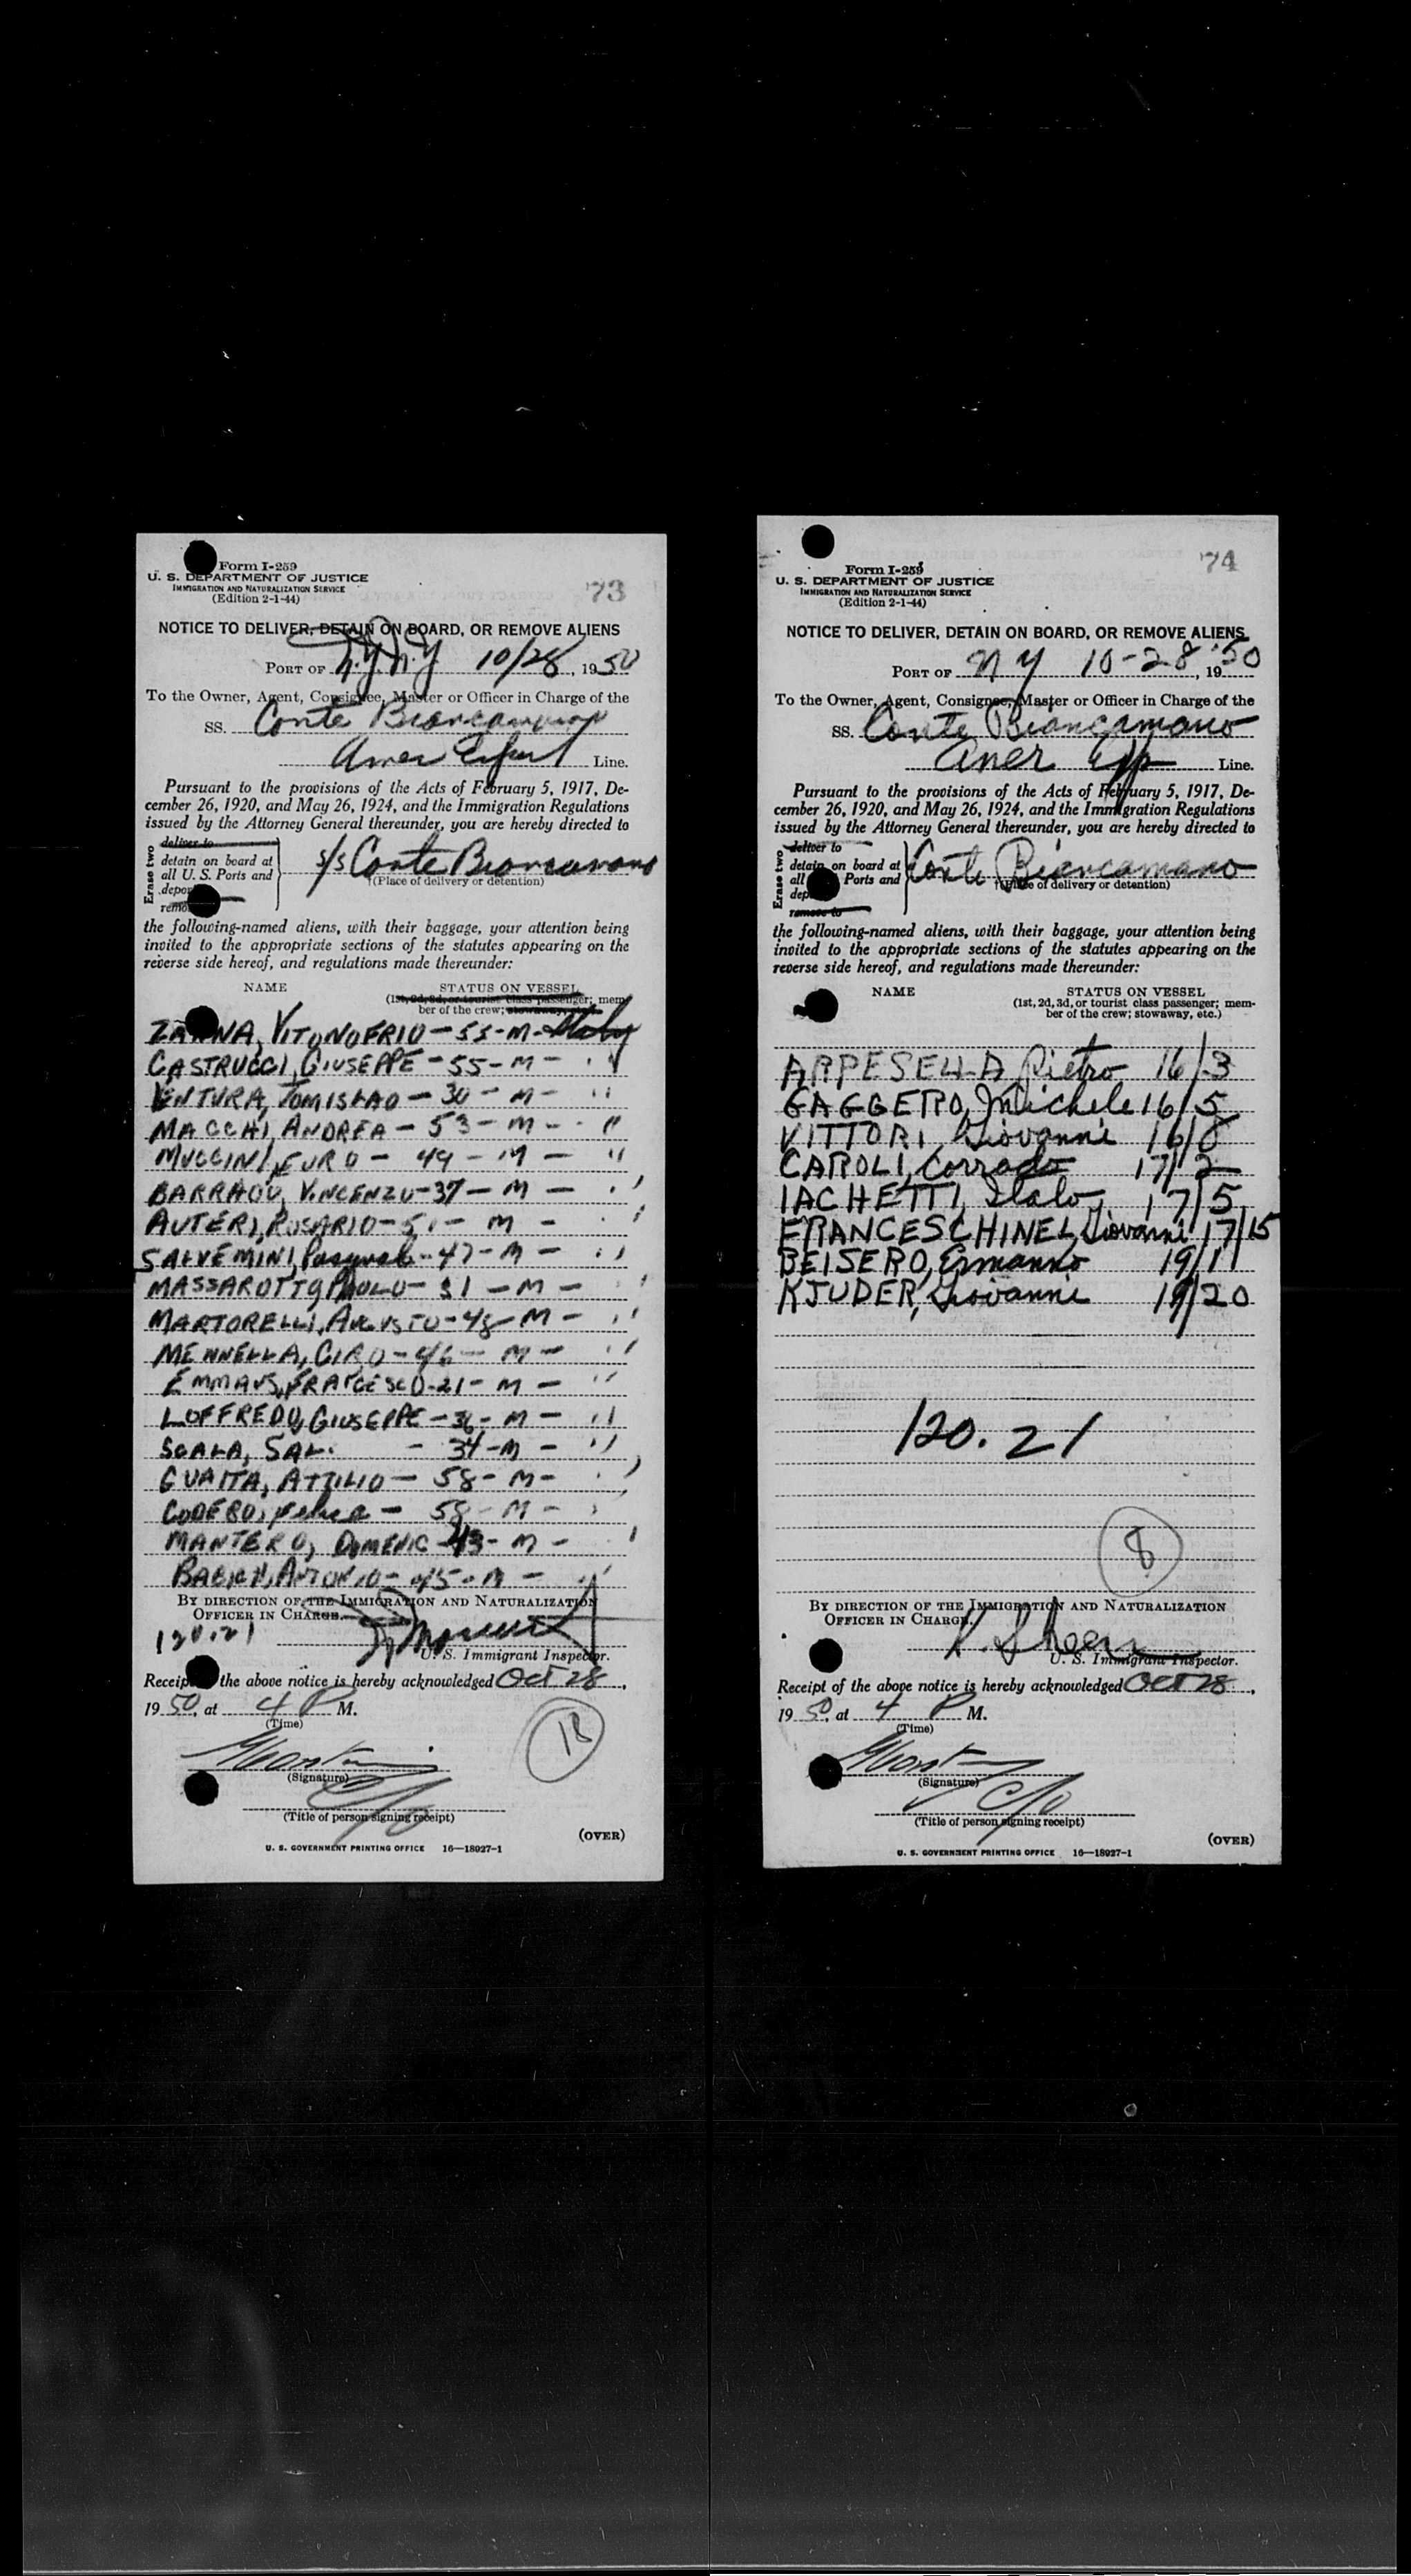 Form I-259
U. S. DEPARTMENT OF JUSTICE
IMMIGRATION AND NATURALIZATION SERVICE
(Edition 2-1-44)
73
NOTICE TO DELIVER, DETAIN ON BOARD, OR REMOVE ALIENS
PORT OF N.Y. N.Y 10/28, 1950
To the Owner, Agent, Consignee, Master or Officer in Charge of the
SS. Conte Biancamano
Amer Export Line.
Pursuant to the provisions of the Acts of February 5, 1917, De-
cember 26, 1920, and May 26, 1924, and the Immigration Regulations
issued by the Attorney General thereunder, you are hereby directed to
Erase two
deliver to
detain on board at
all U. S. Ports and
depor
remo
s/s Conte Biancamano
†(Place of delivery or detention)
the following-named aliens, with their baggage, your attention being
invited to the appropriate sections of the statutes appearing on the
reverse side hereof, and regulations made thereunder:
NAME STATUS ON VESSEL
(1st, 2d, 3d, or tourist class passenger; mem-
ber of the crew; stowaway, etc.)
ZANNA, VITONOFRIO - 53 - M - Italy
CASTRUCCI, GIUSEPPE - 55 - M - "
VENTURA, TOMISLAO - 30 - M - "
MACCHI, ANDREA - 53 - M - "
MUCCINI, EURO - 49 - M - "
BARRAOU, VINCENZO - 37 - M - "
AUTERI, ROSARIO - 51 - M - "
SALVEMINI, Pasquale - 47 - M - "
MASSAROTTO, PAOLO - 31 - M - "
MARTORELLI, AUGUSTO - 48 - M - "
MENNELLA, CIRO - 46 - M - "
EMMAUS, FRANCESCO - 21 - M - "
LOFFREDO, GIUSEPPE - 36 - M - "
SCALA, SAL. - 34 - M - "
GUAITA, ATTILIO - 58 - M - "
CODEBO, Felice - 58 - M - "
MANTERO, DOMENIC - 43 - M - "
BABICH, ANTONIO - 45 - M - "
BY DIRECTION OF THE IMMIGRATION AND NATURALIZATION
OFFICER IN CHARGE.
120.21
U. S. Immigrant Inspector.
Receipt the above notice is hereby acknowledged Oct 28,
1950, at 4 P M.
(Time)
18
(Signature)
C/O
(Title of person signing receipt)
(OVER)
U. S. GOVERNMENT PRINTING OFFICE 16—18927-1
Form I-259
U. S. DEPARTMENT OF JUSTICE
IMMIGRATION AND NATURALIZATION SERVICE
(Edition 2-1-44)
74
NOTICE TO DELIVER, DETAIN ON BOARD, OR REMOVE ALIENS
PORT OF N Y 10-28, 1950
To the Owner, Agent, Consignee, Master or Officer in Charge of the
SS. Conte Biancamano
Amer Exp Line.
Pursuant to the provisions of the Acts of February 5, 1917, De-
cember 26, 1920, and May 26, 1924, and the Immigration Regulations
issued by the Attorney General thereunder, you are hereby directed to
Erase two
deliver to
detain on board at
all Ports and
dep
remove to
Conte Biancamano
†(Place of delivery or detention)
the following-named aliens, with their baggage, your attention being
invited to the appropriate sections of the statutes appearing on the
reverse side hereof, and regulations made thereunder:
NAME STATUS ON VESSEL
(1st, 2d, 3d, or tourist class passenger; mem-
ber of the crew; stowaway, etc.)
APPESELLA Pietro 16/3
GAGGERO, Michele 16/5
VITTORI, Giovanni 16/8
CAROLI, Corrado 17/2
IACHETTI, Italo, 17/5
FRANCESCHINEL, Giovanni 17/15
BEISERO, Ermanno 19/11
KJUDER, Giovanni 19/20
120.21
8
BY DIRECTION OF THE IMMIGRATION AND NATURALIZATION
OFFICER IN CHARGE.
U. S. Immigrant Inspector.
Receipt of the above notice is hereby acknowledged Oct 28,
1950, at 4 P M.
(Time)
(Signature)
C/O
(Title of person signing receipt)
(OVER)
U. S. GOVERNMENT PRINTING OFFICE 16—18927-1